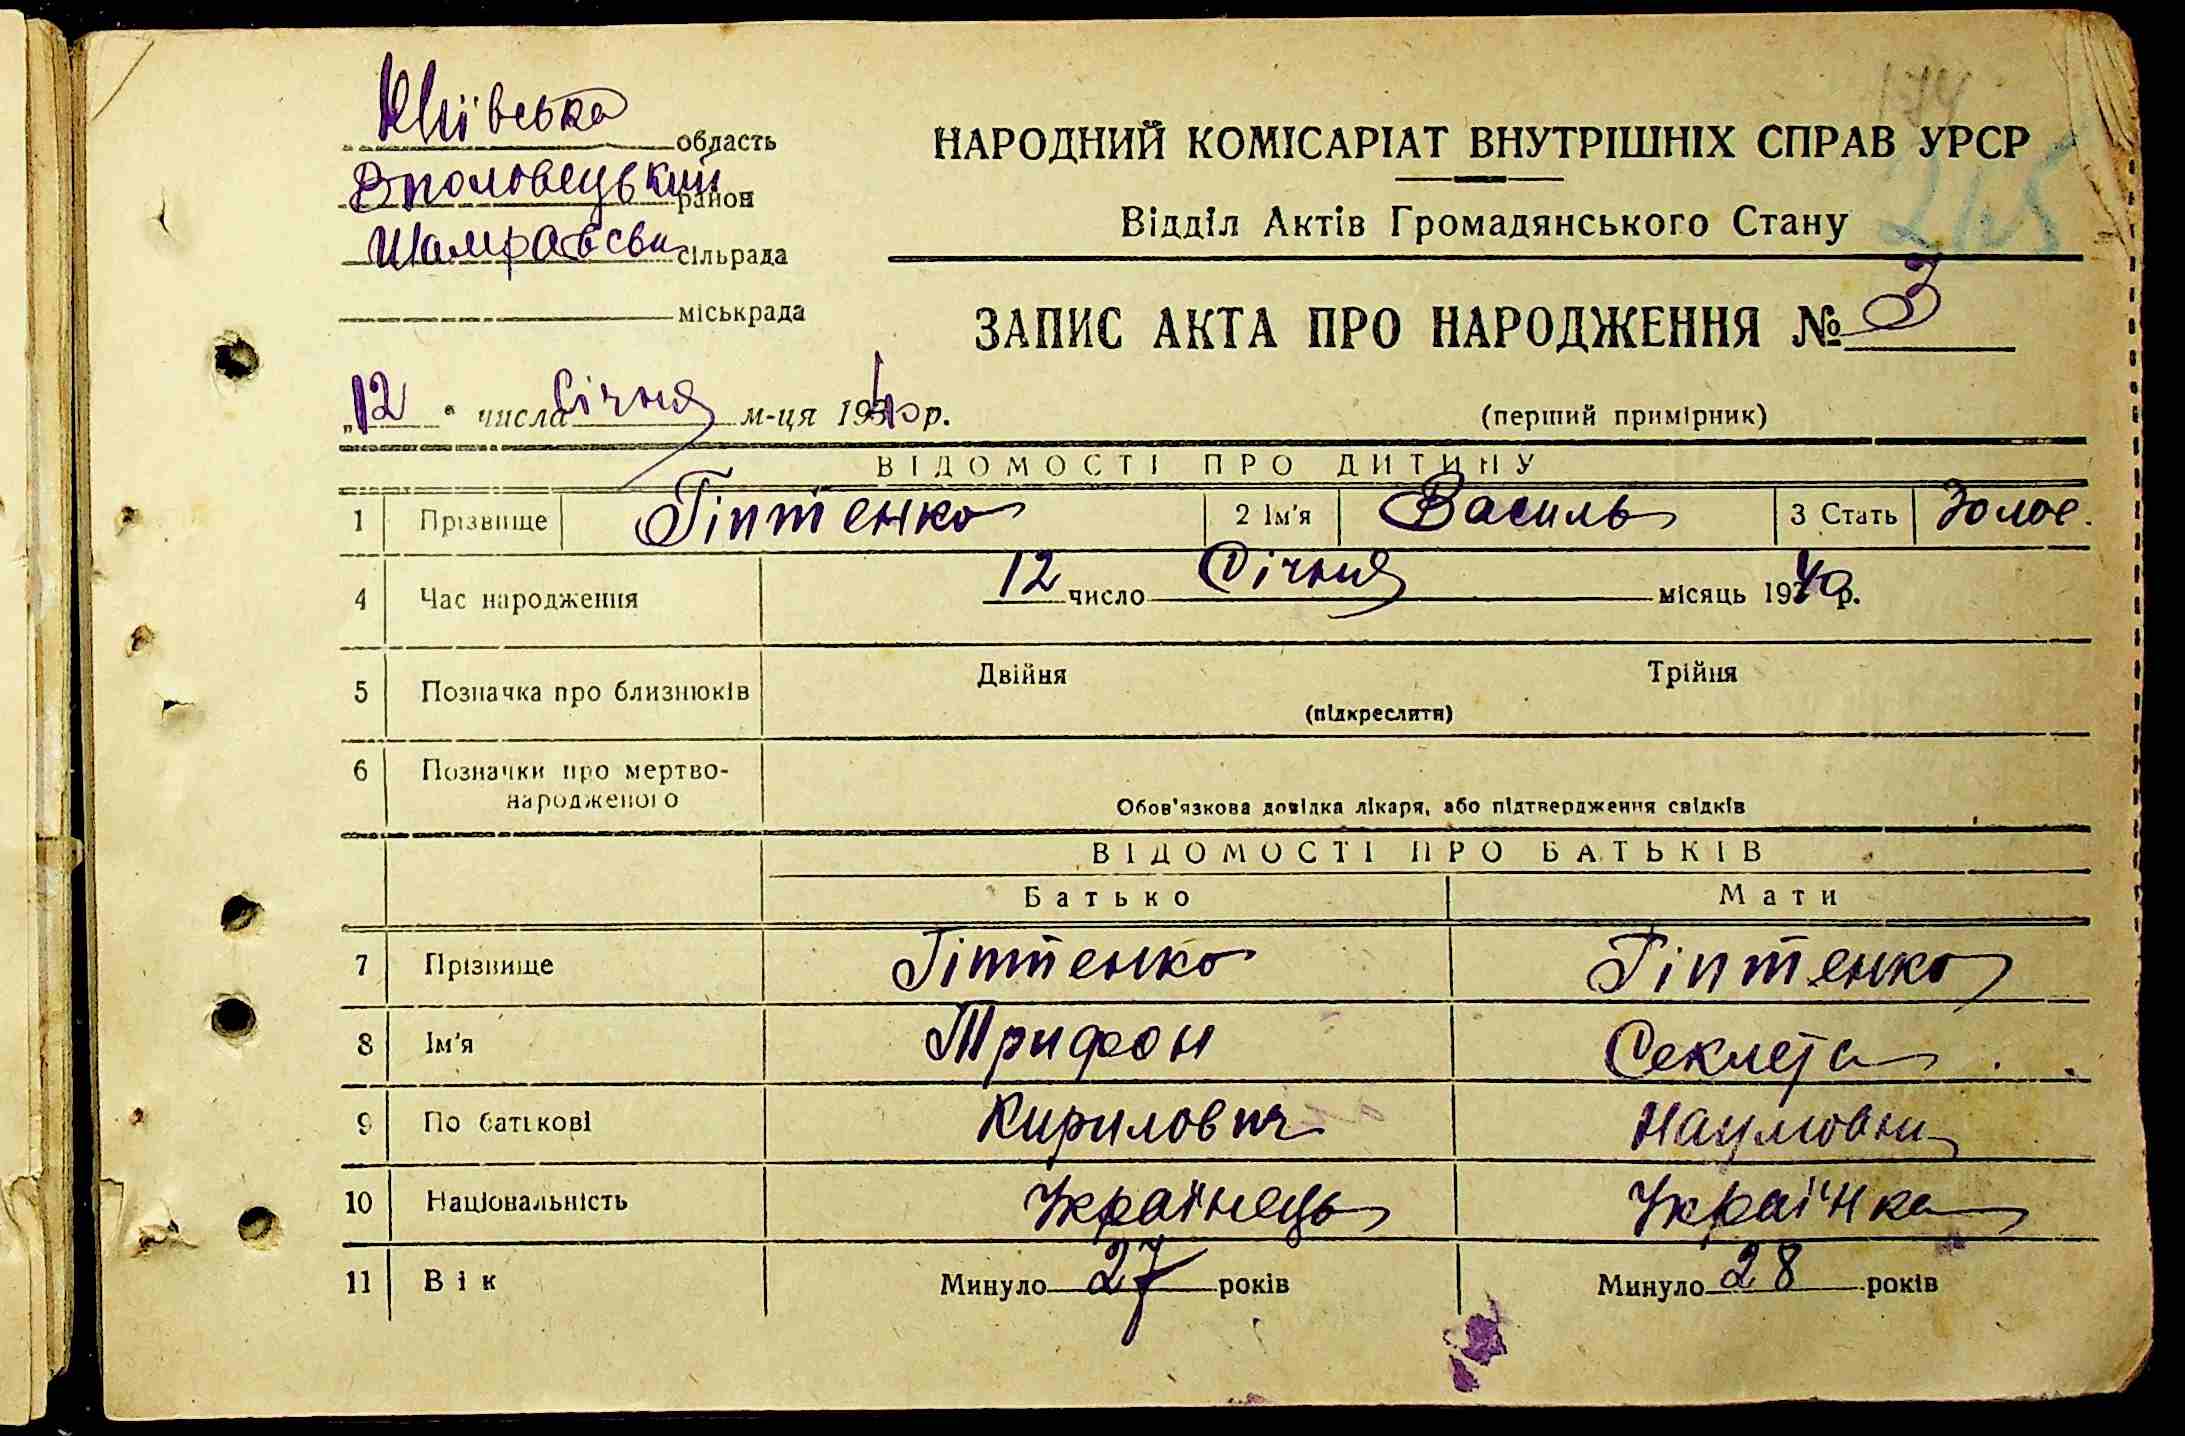 Київська область
Споловецький район
Шамраєвськ сільрада
міськрада
174
НАРОДНИЙ КОМІСАРІАТ ВНУТРІШНІХ СПРАВ УРСР
Відділ Актів Громадянського Стану
245
ЗАПИС АКТА ПРО НАРОДЖЕННЯ № 3
„12" числа Січня м-ця 1940 р.
(перший примірник)
ВІДОМОСТІ ПРО ДИТИНУ
1 Прізвище Гіптенко 2 Ім'я Василь 3 Стать
4 Час народження 12 число Січня місяць 1940 р.
5 Позначка про близнюків Двійня Трійня
(підкреслити)
6 Позначки про мертво-
народженого
Обов'язкова довідка лікаря, або підтвердження свідків
ВІДОМОСТІ ПРО БАТЬКІВ
Батько Мати
7 Прізвище Гіптенко Гіптенко
8 Ім'я Трифон Секлета
9 По батькові Кирилович Наумовни
10 Національність Українець Українка
11 Вік Минуло 27 років Минуло 28 років